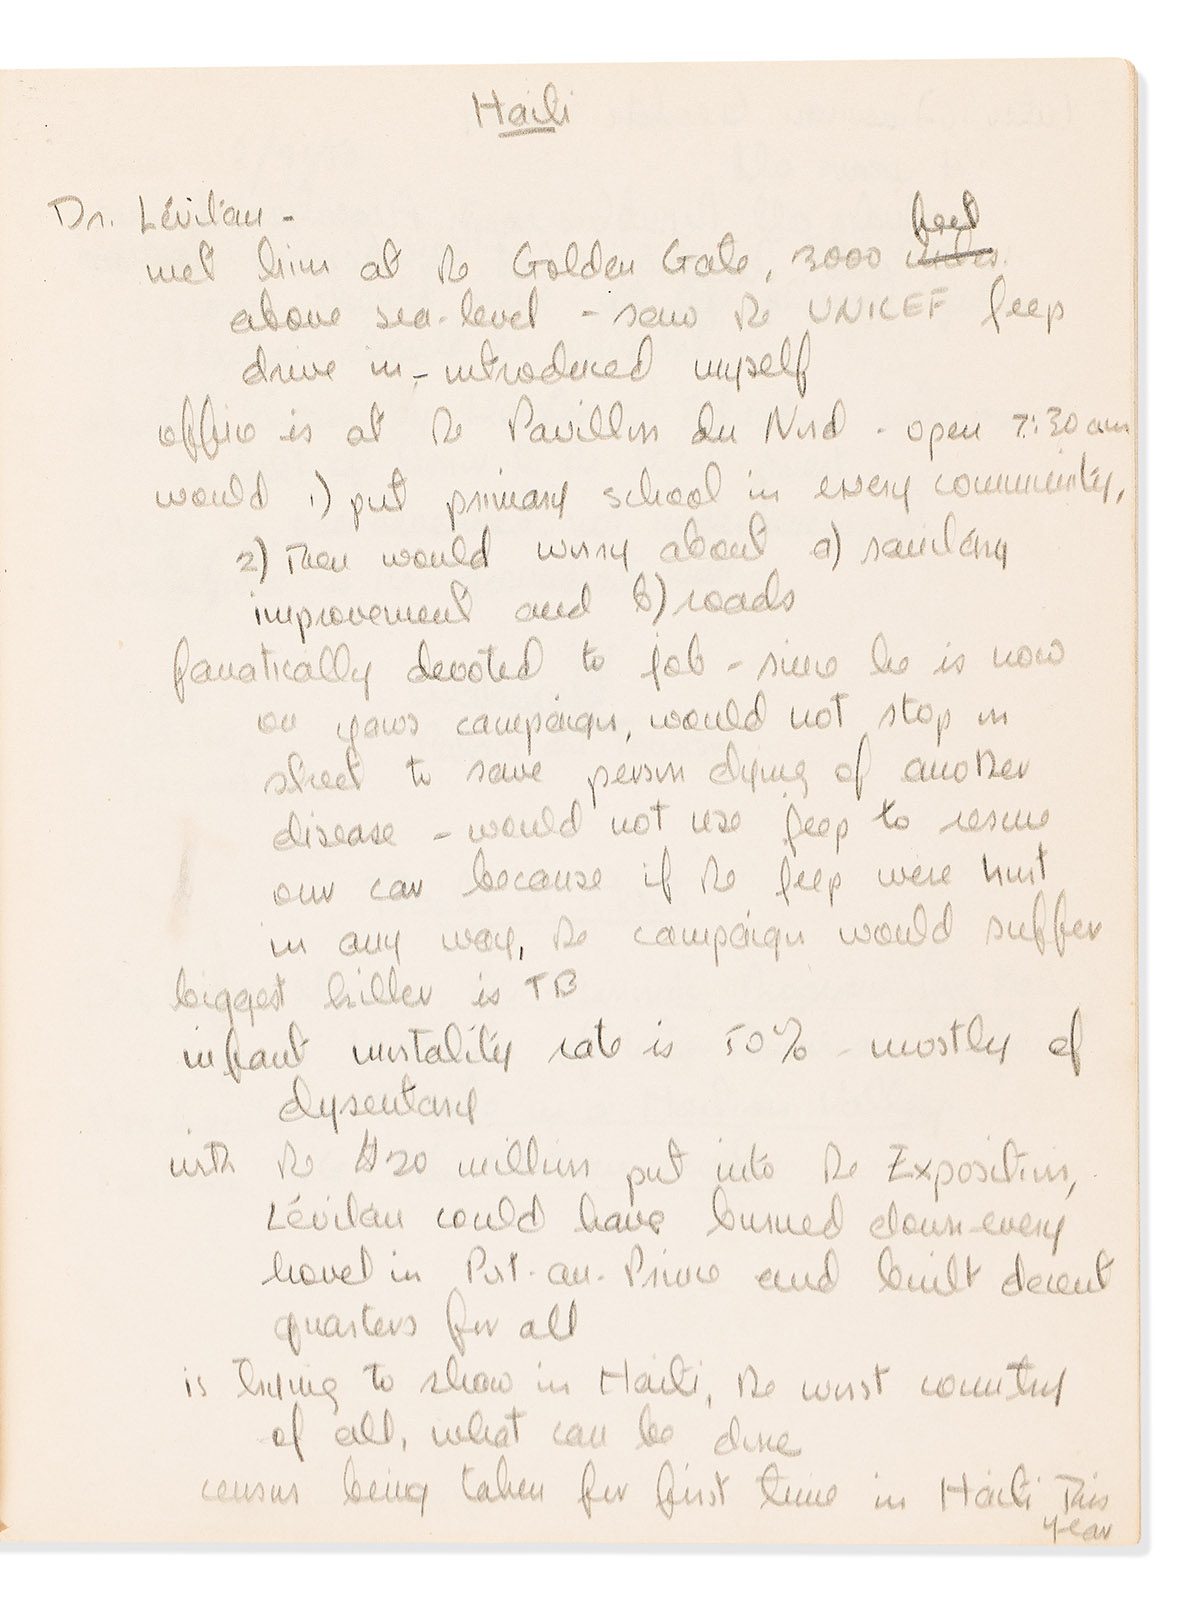 Haiti
Dr. Lévitan -
met him at the Golden Gate, 3000 ~~miles~~ feet
above sea-level - saw the UNICEF jeep
drive in - introduced myself
office is at the Pavillon du Nord - open 7:30 am
would 1) put primary school in every community,
2) Then would worry about a) sanitary
improvement and b) roads
fanatically devoted to job - since he is now
on yaws campaign, would not stop in
street to save person dying of another
disease - would not use jeep to rescue
our car because if the jeep were hurt
in any way, the campaign would suffer
biggest killer is TB
infant mortality rate is 50% - mostly of
dysentary
with the $20 million put into the Exposition,
Lévitan could have burned down every
hovel in Port-au-Prince and built decent
quarters for all
is trying to show in Haiti, the worst country
of all, what can be done
census being taken for first time in Haiti This
year